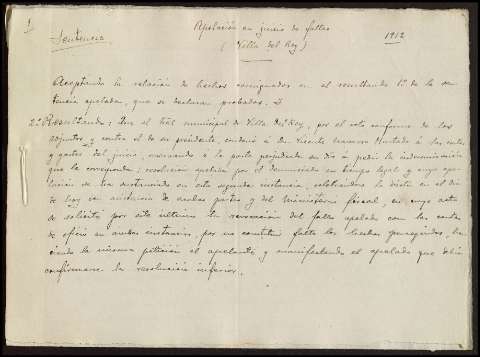 1
Apelación en juicio de faltas
Sentencia
1912
(Villa del Rey)
Aceptando la relación de hechos consignados en el resultando 1º de la sen
tencia apelada, que se declaran probados. y
2º Resultando: Que el tral municipal de Villa del Rey, por el voto conforme de los
adjuntos contra el de su presidente, condenó á Dn Vicente Hurtado á las costas
y gastos del juicio, reservando á la parte perjudicada su dro á pedir la indemnización
que le corresponda; resolución apelada por el denunciado en tiempo legal y cuya ape-
lación se ha sustanciado en esta segunda instancia, celebrándose la vista en el día
de hoy con asistencia de ambas partes y del Ministerio fiscal, en cuyo acto
se solicitó por este último la revocación del fallo apelado con las costas
de oficio en ambas instancias, por no constituir falta los hechos perseguidos, ha-
ciendo la misma petición el apelante, y manifestando el apelado que debía
confirmarse la resolución inferior.